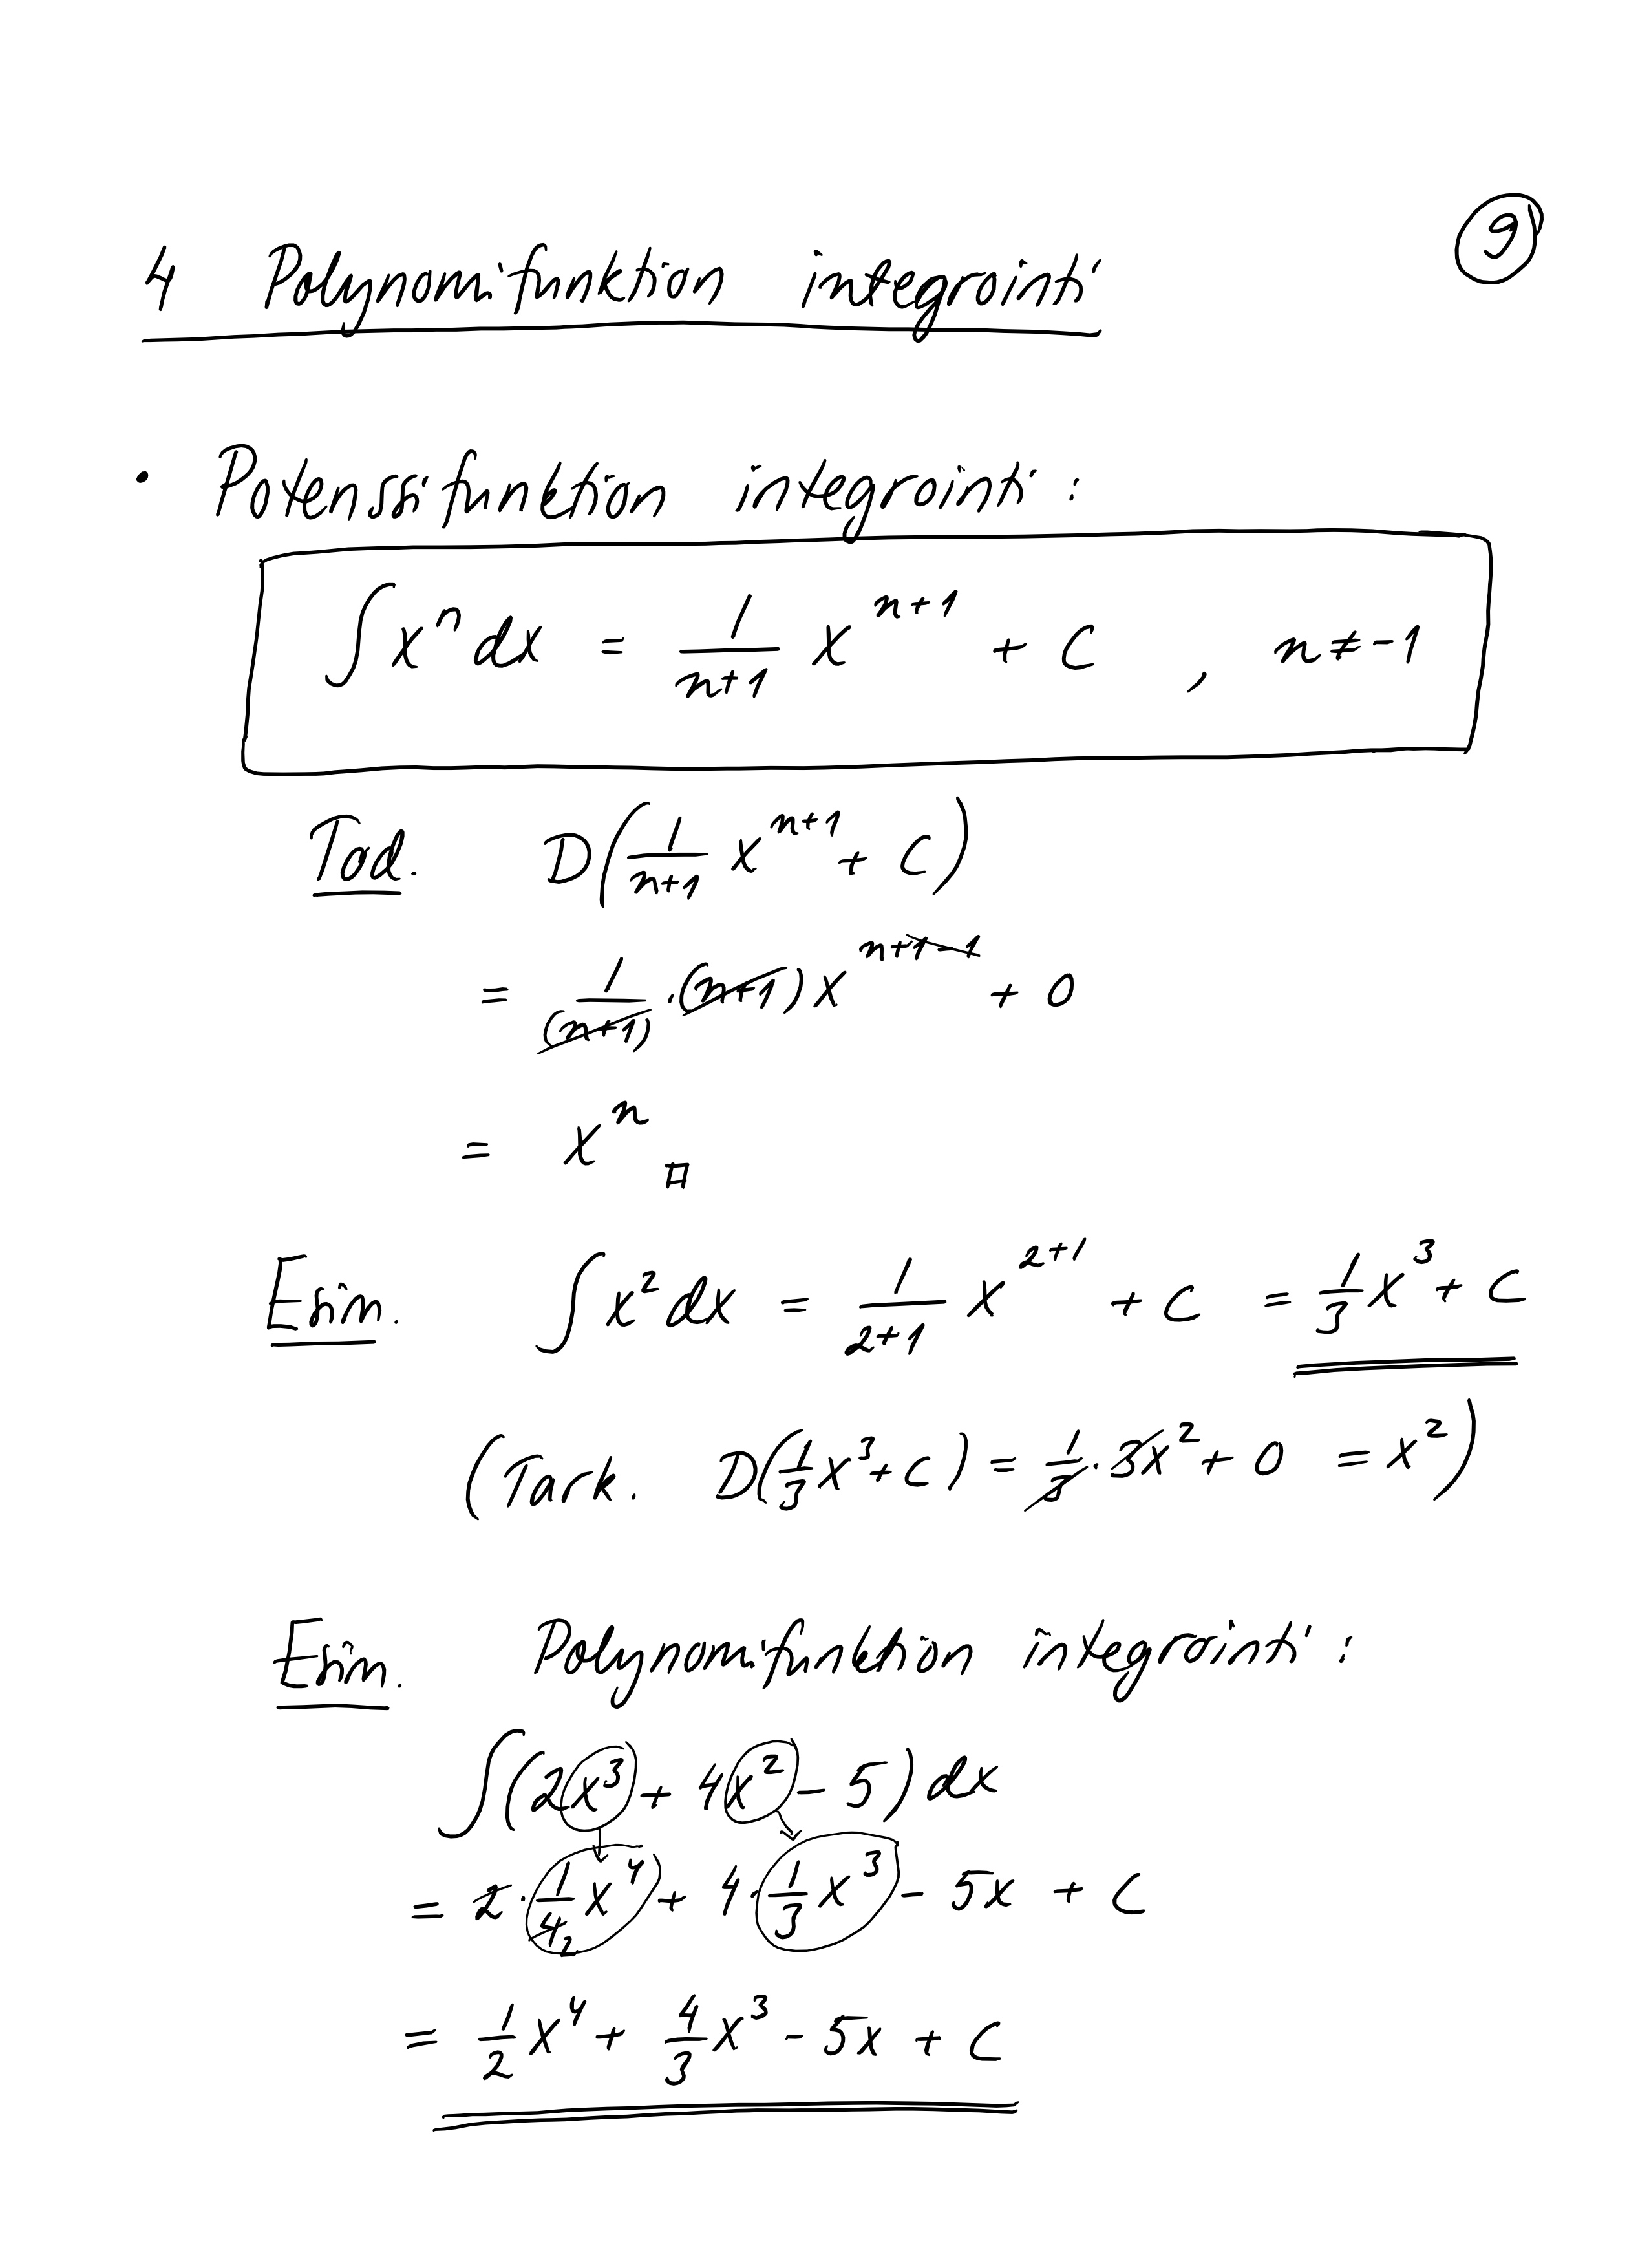 9
4 Polynomifunktion integrointi
• Potenssifunktion integrointi :
∫ xⁿ dx = 1/(n+1) x^(n+1) + C , n ≠ -1
Tod. D(1/(n+1) x^(n+1) + C)
= 1/(n+1) · (n+1) x^(n+1-1) + 0
= xⁿ □
Esim. ∫ x² dx = 1/(2+1) x^(2+1) + C = 1/3 x³ + C
(Tark. D(1/3 x³ + C) = 1/3 · 3x² + 0 = x²)
Esim. Polynomifunktion integrointi :
∫(2x³ + 4x² - 5) dx
= 2 · 1/4 x⁴ + 4 · 1/3 x³ - 5x + C
2
= 1/2 x⁴ + 4/3 x³ - 5x + C